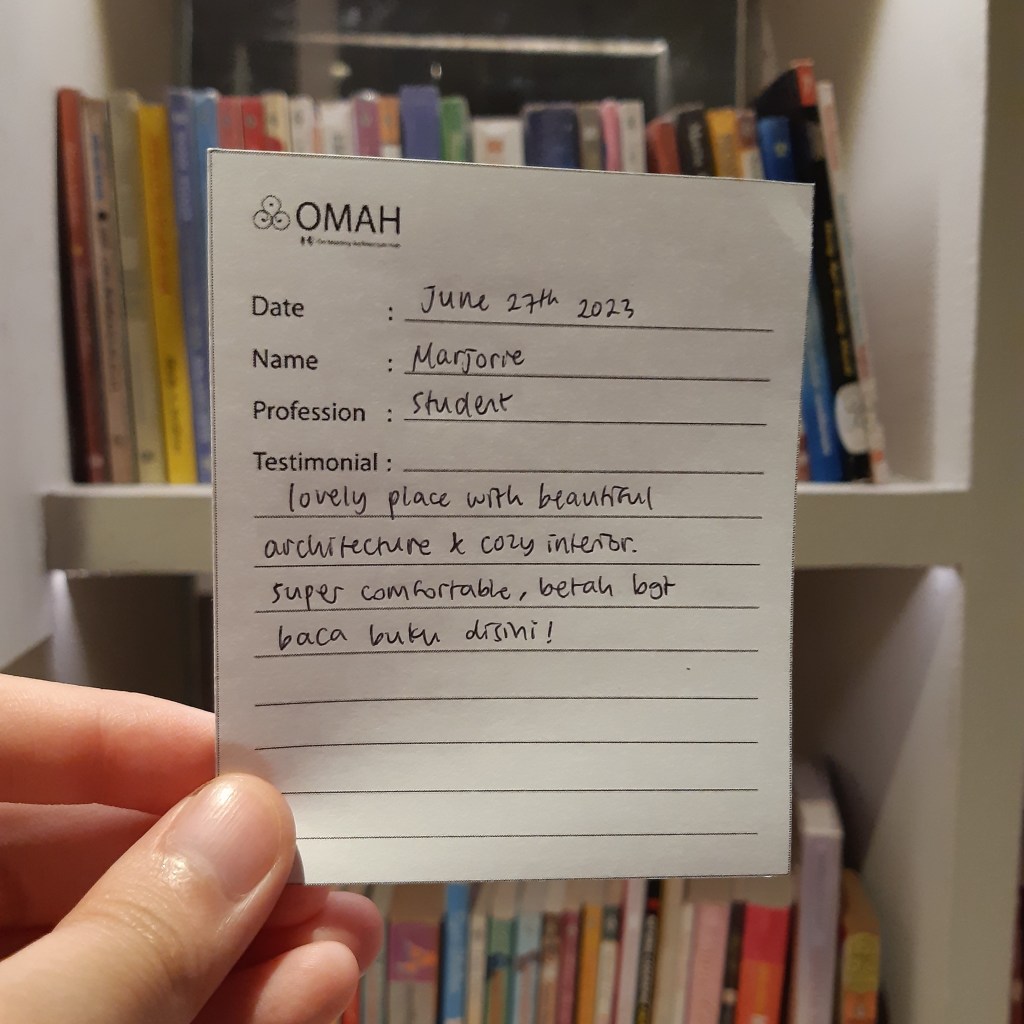 OMAH
Date : June 27th 2023
Name : Marjorie
Profession : Student
Testimonial :
lovely place with beautiful
architecture & cozy interior.
super comfortable, betah bgt
baca buku disini!